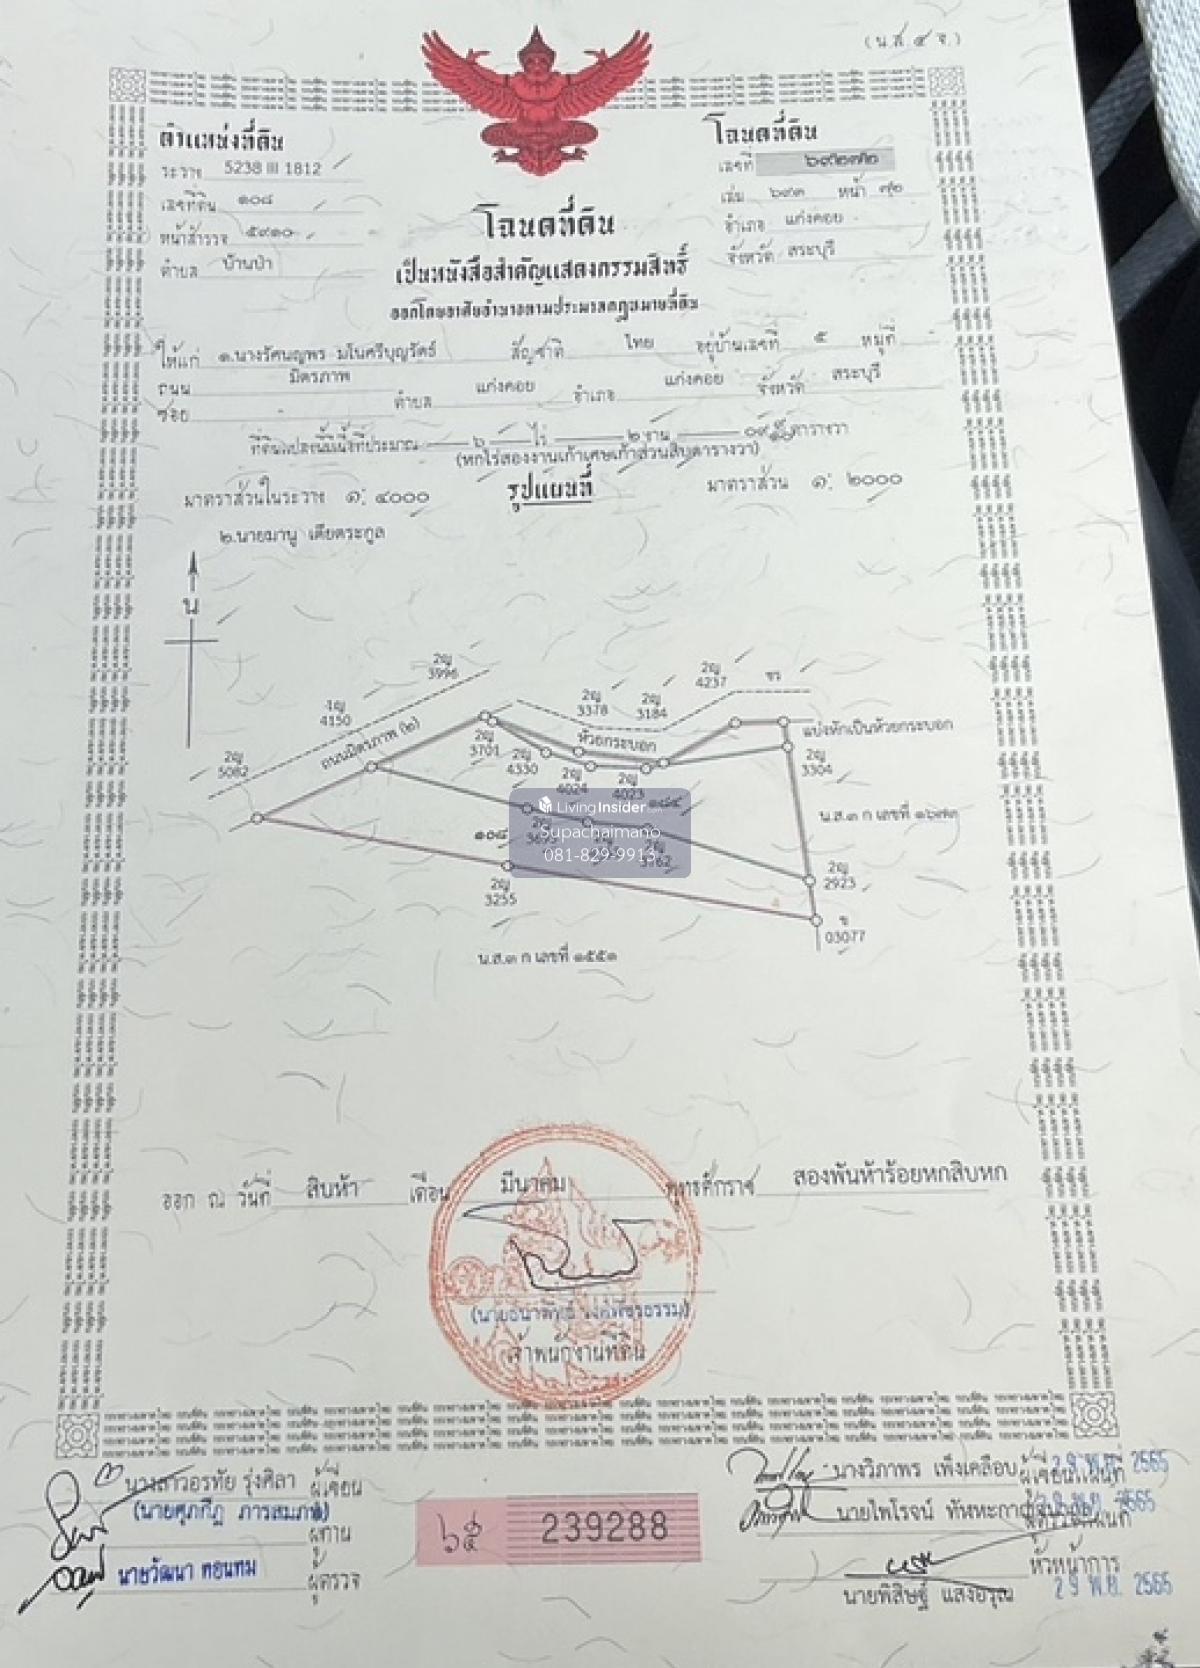 (น.ส. ๔ จ.)
ตำแหน่งที่ดิน
ระวาง 5238 III 1812
เลขที่ดิน ๑๐๘
หน้าสำรวจ ๕๙๑๐
ตำบล บ้านป่า
โฉนดที่ดิน
เลขที่ ๖๙๒๗๒
เล่ม ๖๙๓ หน้า ๗๒
อำเภอ แก่งคอย
จังหวัด สระบุรี
โฉนดที่ดิน
เป็นหนังสือสำคัญแสดงกรรมสิทธิ์
ออกโดยอาศัยอำนาจตามประมวลกฎหมายที่ดิน
ให้แก่ ๑.นางรัศนญพร มโนศรีบุญรัตธ์ สัญชาติ ไทย อยู่บ้านเลขที่ ๕ หมู่ที่
ถนน มิตรภาพ ตำบล แก่งคอย อำเภอ แก่งคอย จังหวัด สระบุรี
ซอย
ที่ดินแปลงนี้มีเนื้อที่ประมาณ ๖ ไร่ ๒ งาน ๐๙ ตารางวา
(หกไร่สองงานเก้าเศษเก้าส่วนสิบตารางวา)
มาตราส่วนในระวาง ๑: ๔๐๐๐ รูปแผนที่ มาตราส่วน ๑: ๒๐๐๐
๒.นายมานู เตียตระกูล
น
2ญ
3996
2ญ
4237
ชร
1ญ
4150
2ญ
3378
2ญ
3184
ถนนมิตรภาพ (๒)
ห้วยกระบอก
แบ่งหักเป็นห้วยกระบอก
2ญ
5082
2ญ
3701
2ญ
4330
2ญ
4024
2ญ
4023
2ญ
3304
๑๘๕
น.ส.๓ ก เลขที่ ๑๖๗๓
LivingInsider.com
Supachaimano
081-829-9913
๑๐๘
2ญ
3255
2ญ
2923
4
ข
03077
น.ส.๓ ก เลขที่ ๑๕๕๑
ออก ณ วันที่ สิบห้า เดือน มีนาคม พุทธศักราช สองพันห้าร้อยหกสิบหก
เจ้าพนักงานที่ดิน
นางสาวอรทัย รุ่งศิลา ผู้เขียน
ผู้ทาน
นายวัฒนา ตอนทม ผู้ตรวจ
๖๕ 239288
นางวิภาพร เพ็งเคลือบ ผู้เขียนแผนที่ 29 พ.ย. 2565
นายไพโรจน์ ผู้ตรวจแผนที่ 2565
หัวหน้าการ
นายพิสิษฐ์ แสงอรุณ 29 พ.ย. 2565